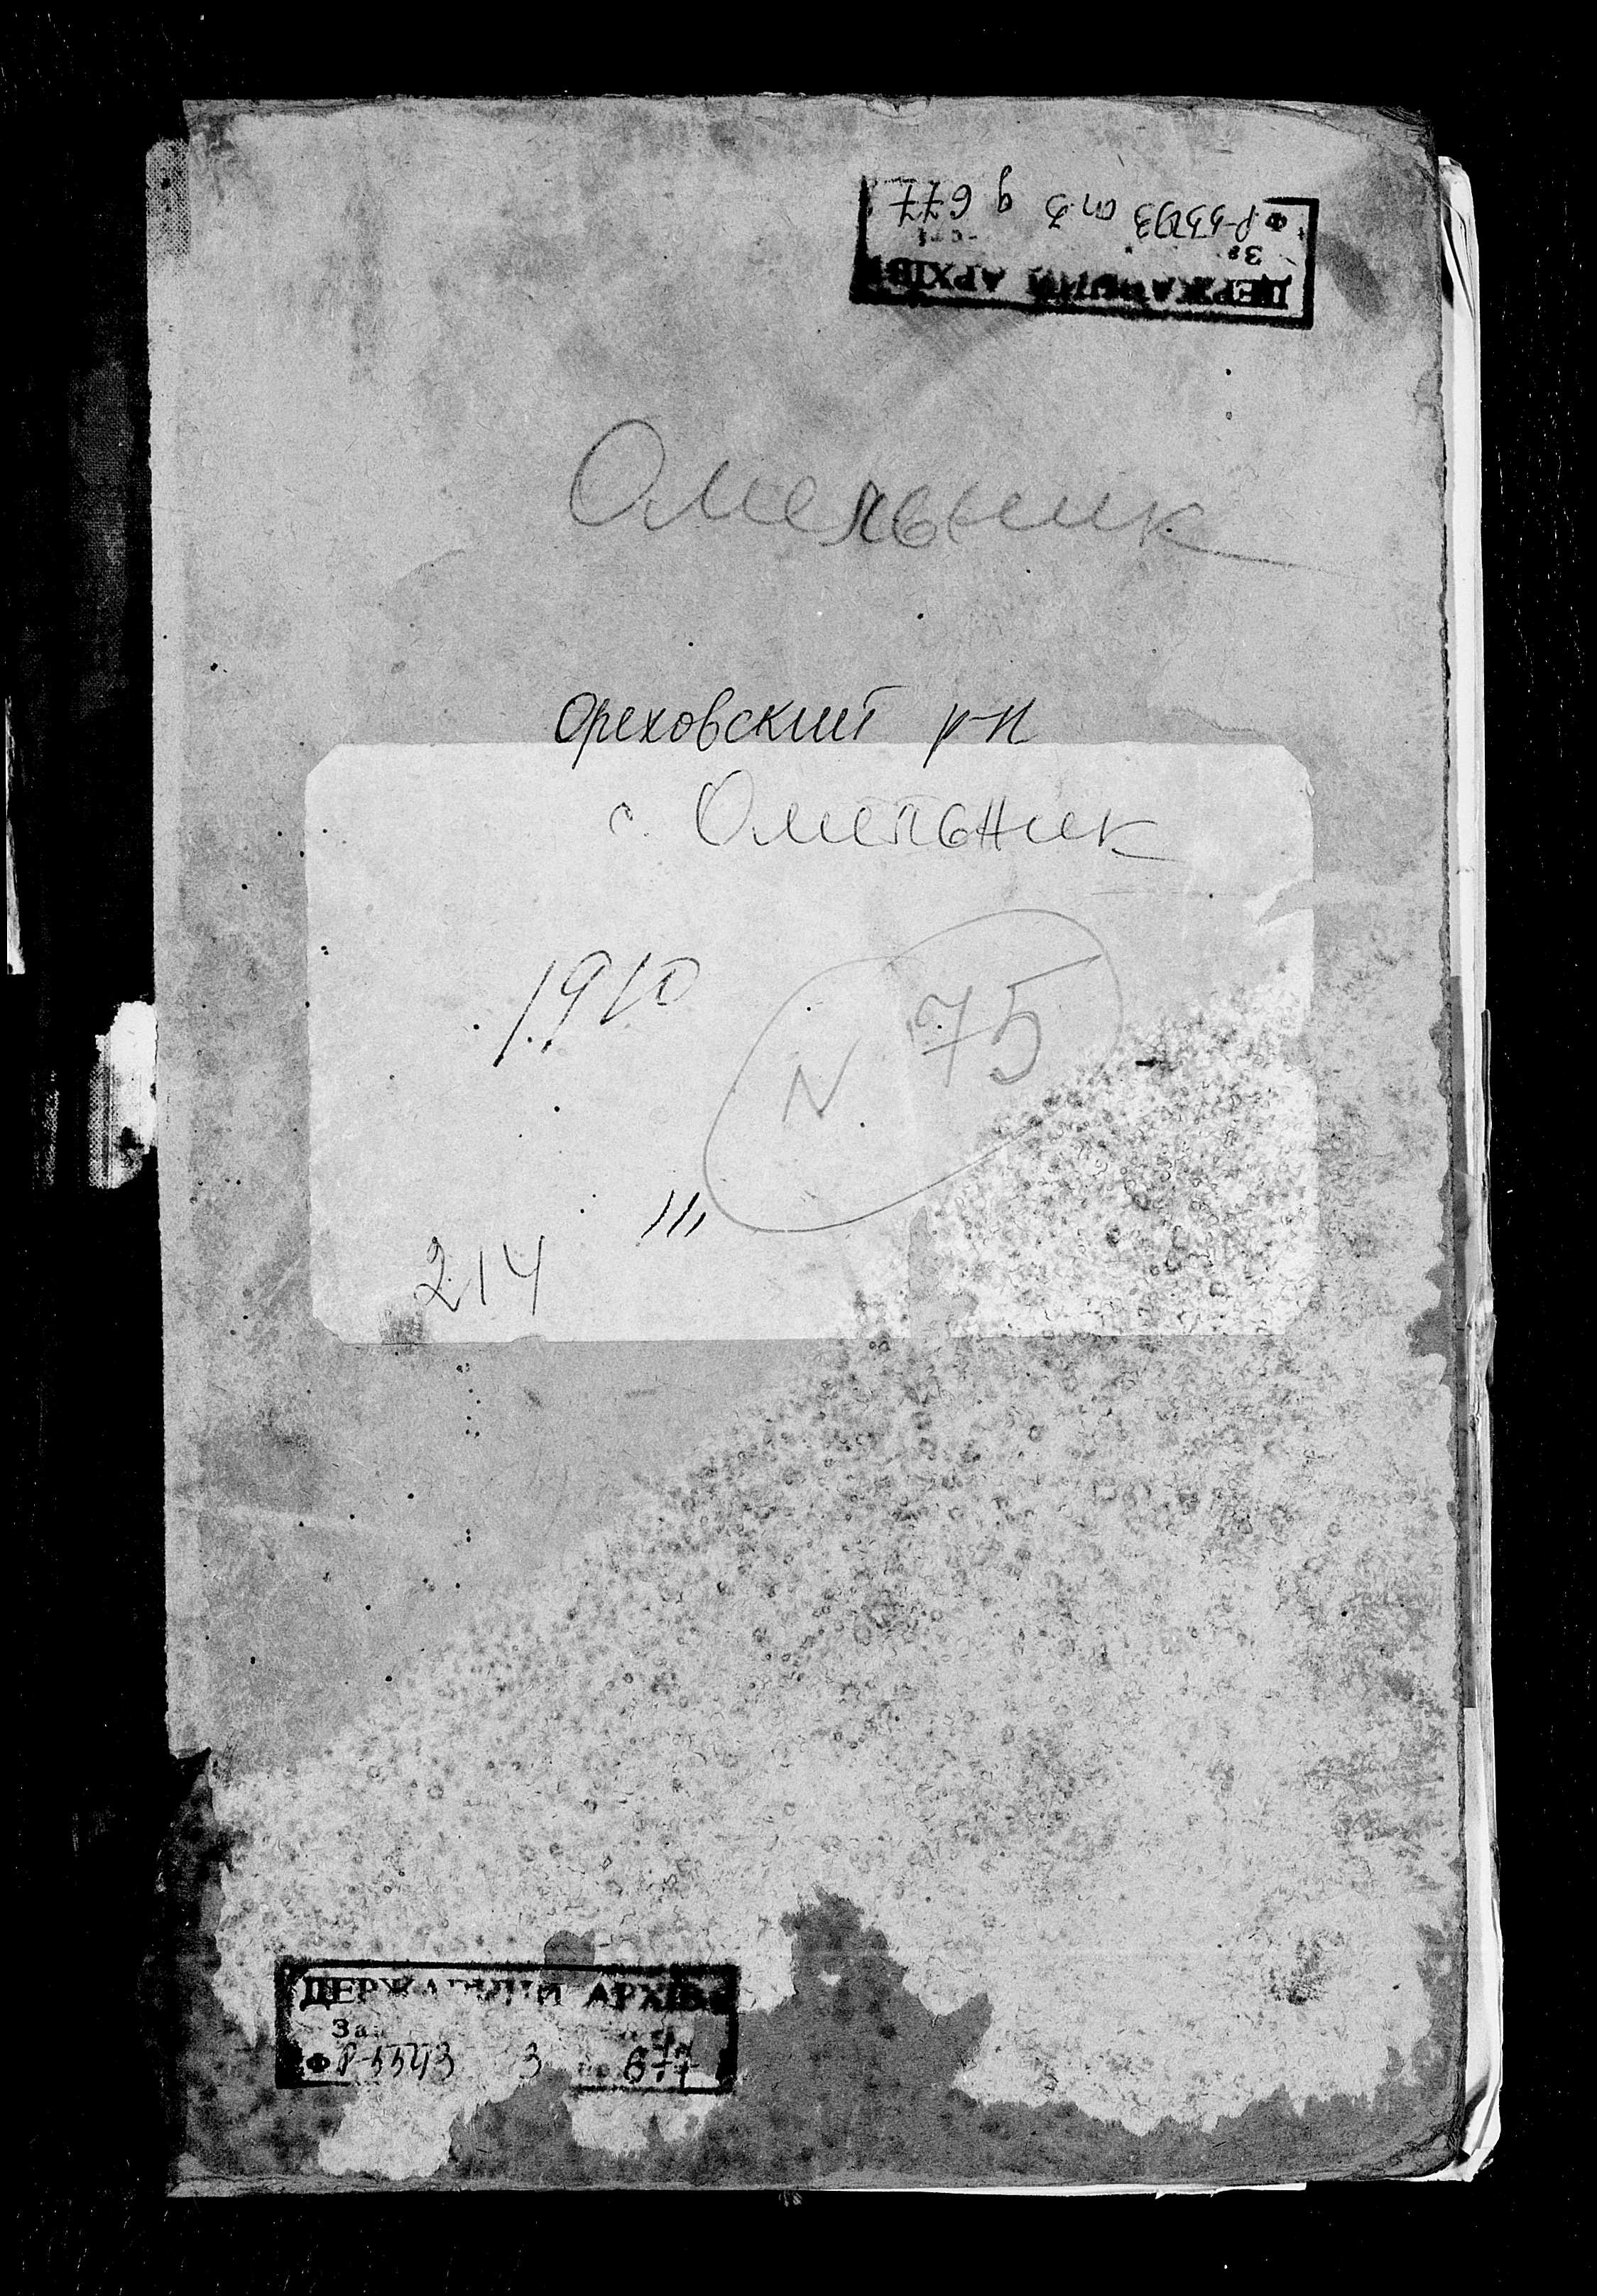 Ф Р-5593 оп 3 д 677
ДЕРЖАВНИЙ АРХІВ
Омельник
Ореховский р-н
с. Омельник
1910
N 75
III
214
ДЕРЖАВНИЙ АРХІВ
За
Ф Р-5593 3 677